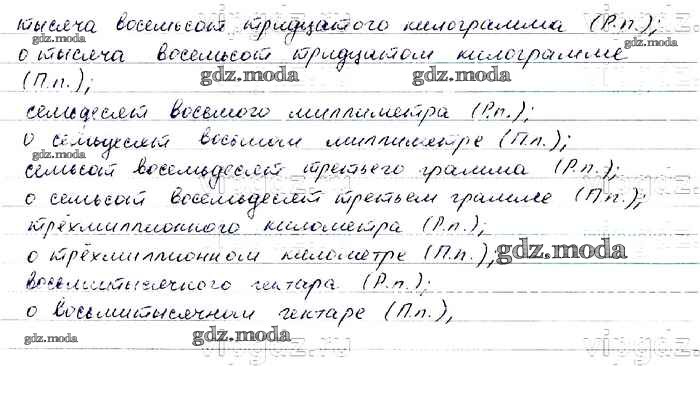 тысяча восемьсот тридцатого килограмма (Р.п.);
gdz.moda
о тысяча восемьсот тридцатом килограмме
gdz.moda gdz.moda gdz.moda
(П.п.);
семьдесят восьмого миллиметра (Р.п.);
о семьдесят восьмом миллиметре (П.п.);
gdz.moda
vipgdz.ru
семьсот восемьдесят третьего грамма (Р.п.);
о семьсот восемьдесят третьем грамме (П.п.);
трёхмиллионного километра (Р.п.);
о трёхмиллионном километре (П.п.),
gdz.moda
восьмитысячного гектара (Р.п.);
о восьмитысячном гектаре (П.п.),
gdz.moda gdz.moda
vipgdz.ru